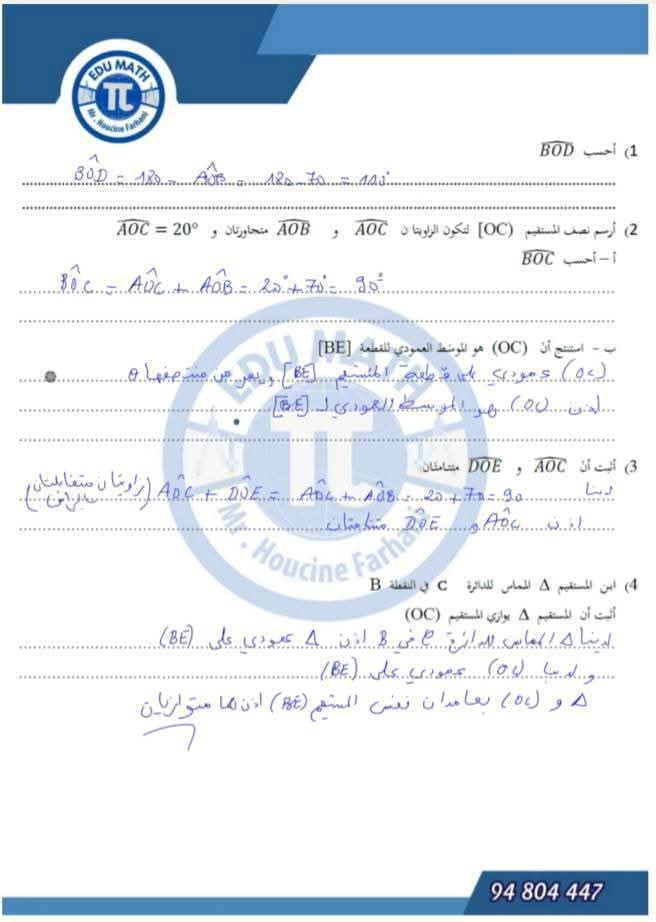 EDU MATH
π
Mr. Houcine Farhani
1) أحسب BOD
BOD = 180 - AOB = 180 - 70 = 110°
2) أرسم نصف المستقيم [OC) لتكون الزاويتا ن AOC و AOB متجاورتان و AOC = 20°
أ – أحسب BOC
BOC = AOC + AOB = 20° + 70° = 90°
ب – استنتج أنّ (OC) هو الموسّط العمودي للقطعة [BE]
(OC) عمودي على قطعة المستقيم [BE] و يمر من منتصفها O
إذن (OC) هو الموسط العمودي لـ [BE]
3) أثبت أنّ AOC و DOE متتامتان
لدينا AOC + DOE = AOC + AOB = 20 + 70 = 90 (زاويتان متقابلتان بالرأس)
اذن AOC و DOE متتامتان
4) ابن المستقيم Δ المماس للدائرة C في النقطة B
أثبت أن المستقيم Δ يوازي المستقيم (OC)
لدينا Δ المماس للدائرة C في B اذن Δ عمودي على (BE)
و لدينا (OC) عمودي على (BE)
Δ و (OC) يعامدان نفس المستقيم (BE) اذن هما متوازيان
EDU MATH
π
Mr. Houcine Farhani
94 804 447